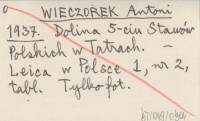 WIECZOREK Antoni
1937. Dolina 5-ciu Stawów
Polskich w Tatrach. –
Leica w Polsce 1, nr 2,
tabl. Tylko fot.